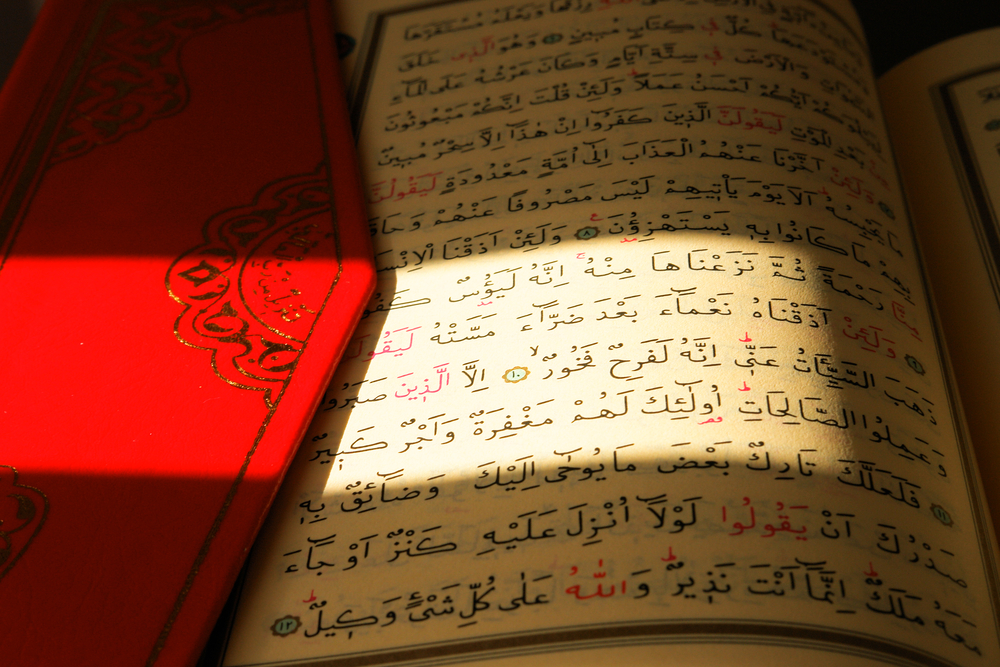 رِزْقُهَا وَيَعْلَمُ مُسْتَقَرَّهَا
كُلٌّ فٖي كِتَابٍ مُبٖينٍ وَهُوَ الَّذٖي خَلَقَ
وَالْاَرْضَ فٖي سِتَّةِ اَيَّامٍ وَكَانَ عَرْشُهُ عَلَى الْمَآءِ
اَيُّكُمْ اَحْسَنُ عَمَلًا وَلَئِنْ قُلْتَ اِنَّكُمْ مَبْعُوثُونَ
بَعْدِ الْمَوْتِ لَيَقُولَنَّ الَّذٖينَ كَفَرُوا اِنْ هٰذَٓا اِلَّا سِحْرٌ مُبٖينٌ
وَلَئِنْ اَخَّرْنَا عَنْهُمُ الْعَذَابَ اِلٰٓى اُمَّةٍ مَعْدُودَةٍ لَيَقُولُنَّ
مَا يَحْبِسُهُ اَلَا يَوْمَ يَاْتٖيهِمْ لَيْسَ مَصْرُوفًا عَنْهُمْ وَحَاقَ
بِهِمْ مَا كَانُوا بِهٖ يَسْتَهْزِؤُنَ ٨ وَلَئِنْ اَذَقْنَا الْاِنْسَ
مِنَّا رَحْمَةً ثُمَّ نَزَعْنَاهَا مِنْهُ اِنَّهُ لَيَؤُسٌ كَفُو
٩ وَلَئِنْ اَذَقْنَاهُ نَعْمَآءَ بَعْدَ ضَرَّآءَ مَسَّتْهُ لَيَقُولَ
ذَهَبَ السَّيِّاٰتُ عَنّٖي اِنَّهُ لَفَرِحٌ فَخُورٌ ١٠ اِلَّا الَّذٖينَ صَبَرُوا
وَعَمِلُوا الصَّالِحَاتِ اُولٰٓئِكَ لَهُمْ مَغْفِرَةٌ وَاَجْرٌ كَبٖيرٌ
١١ فَلَعَلَّكَ تَارِكٌ بَعْضَ مَا يُوحٰٓى اِلَيْكَ وَضَآئِقٌ بِهٖ
صَدْرُكَ اَنْ يَقُولُوا لَوْلَٓا اُنْزِلَ عَلَيْهِ كَنْزٌ اَوْ جَآءَ
مَعَهُ مَلَكٌ اِنَّمَٓا اَنْتَ نَذٖيرٌ وَاللّٰهُ عَلٰى كُلِّ شَیْءٍ وَكٖيلٌ ١٢